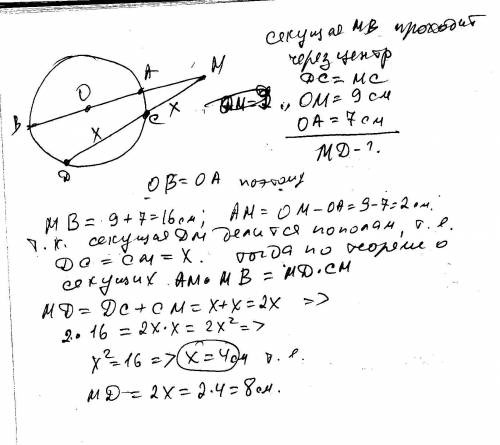 секущая МВ проходит
через центр
DC = MC
OM = 9 см
OA = 7 см
MD - ?
M
A
O
C
X
B
X
D
OB = OA поэтому
MB = 9 + 7 = 16 см; AM = OM - OA = 9 - 7 = 2 см.
т.к. секущая DM делится пополам, т.е.
DC = CM = X. тогда по теореме о
секущих AM · MB = MD · CM
MD = DC + CM = X + X = 2X =>
2 · 16 = 2X · X = 2X² =>
X² = 16 => X = 4 см т.е.
MD = 2X = 2 · 4 = 8 см.